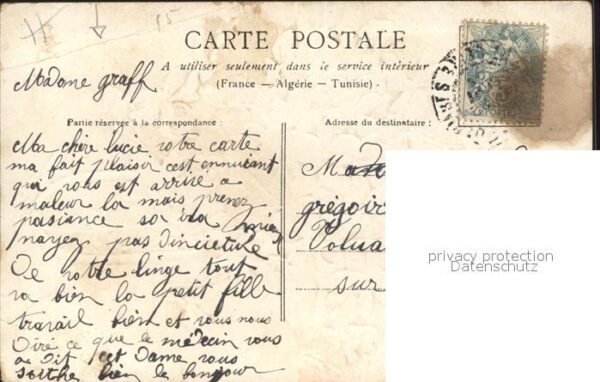 CARTE POSTALE
A utiliser seulement dans le service intérieur
(France — Algérie — Tunisie)
Madame graff
Partie réservée à la correspondance :
Adresse du destinataire :
Ma chère lucie votre carte
ma fait plaisir cest ennuiant
qui vous est arrivé a
maleur la mais prenez
pasiance sa ira mieu
nayez pas dincietude
De notre linge tout
va bien la petit fille
travail bien et vous nous
Diré ce que le médecin vous
a Dit cet Dame vous
bien le bonjour
grégoir
sur
privacy protection
Datenschutz